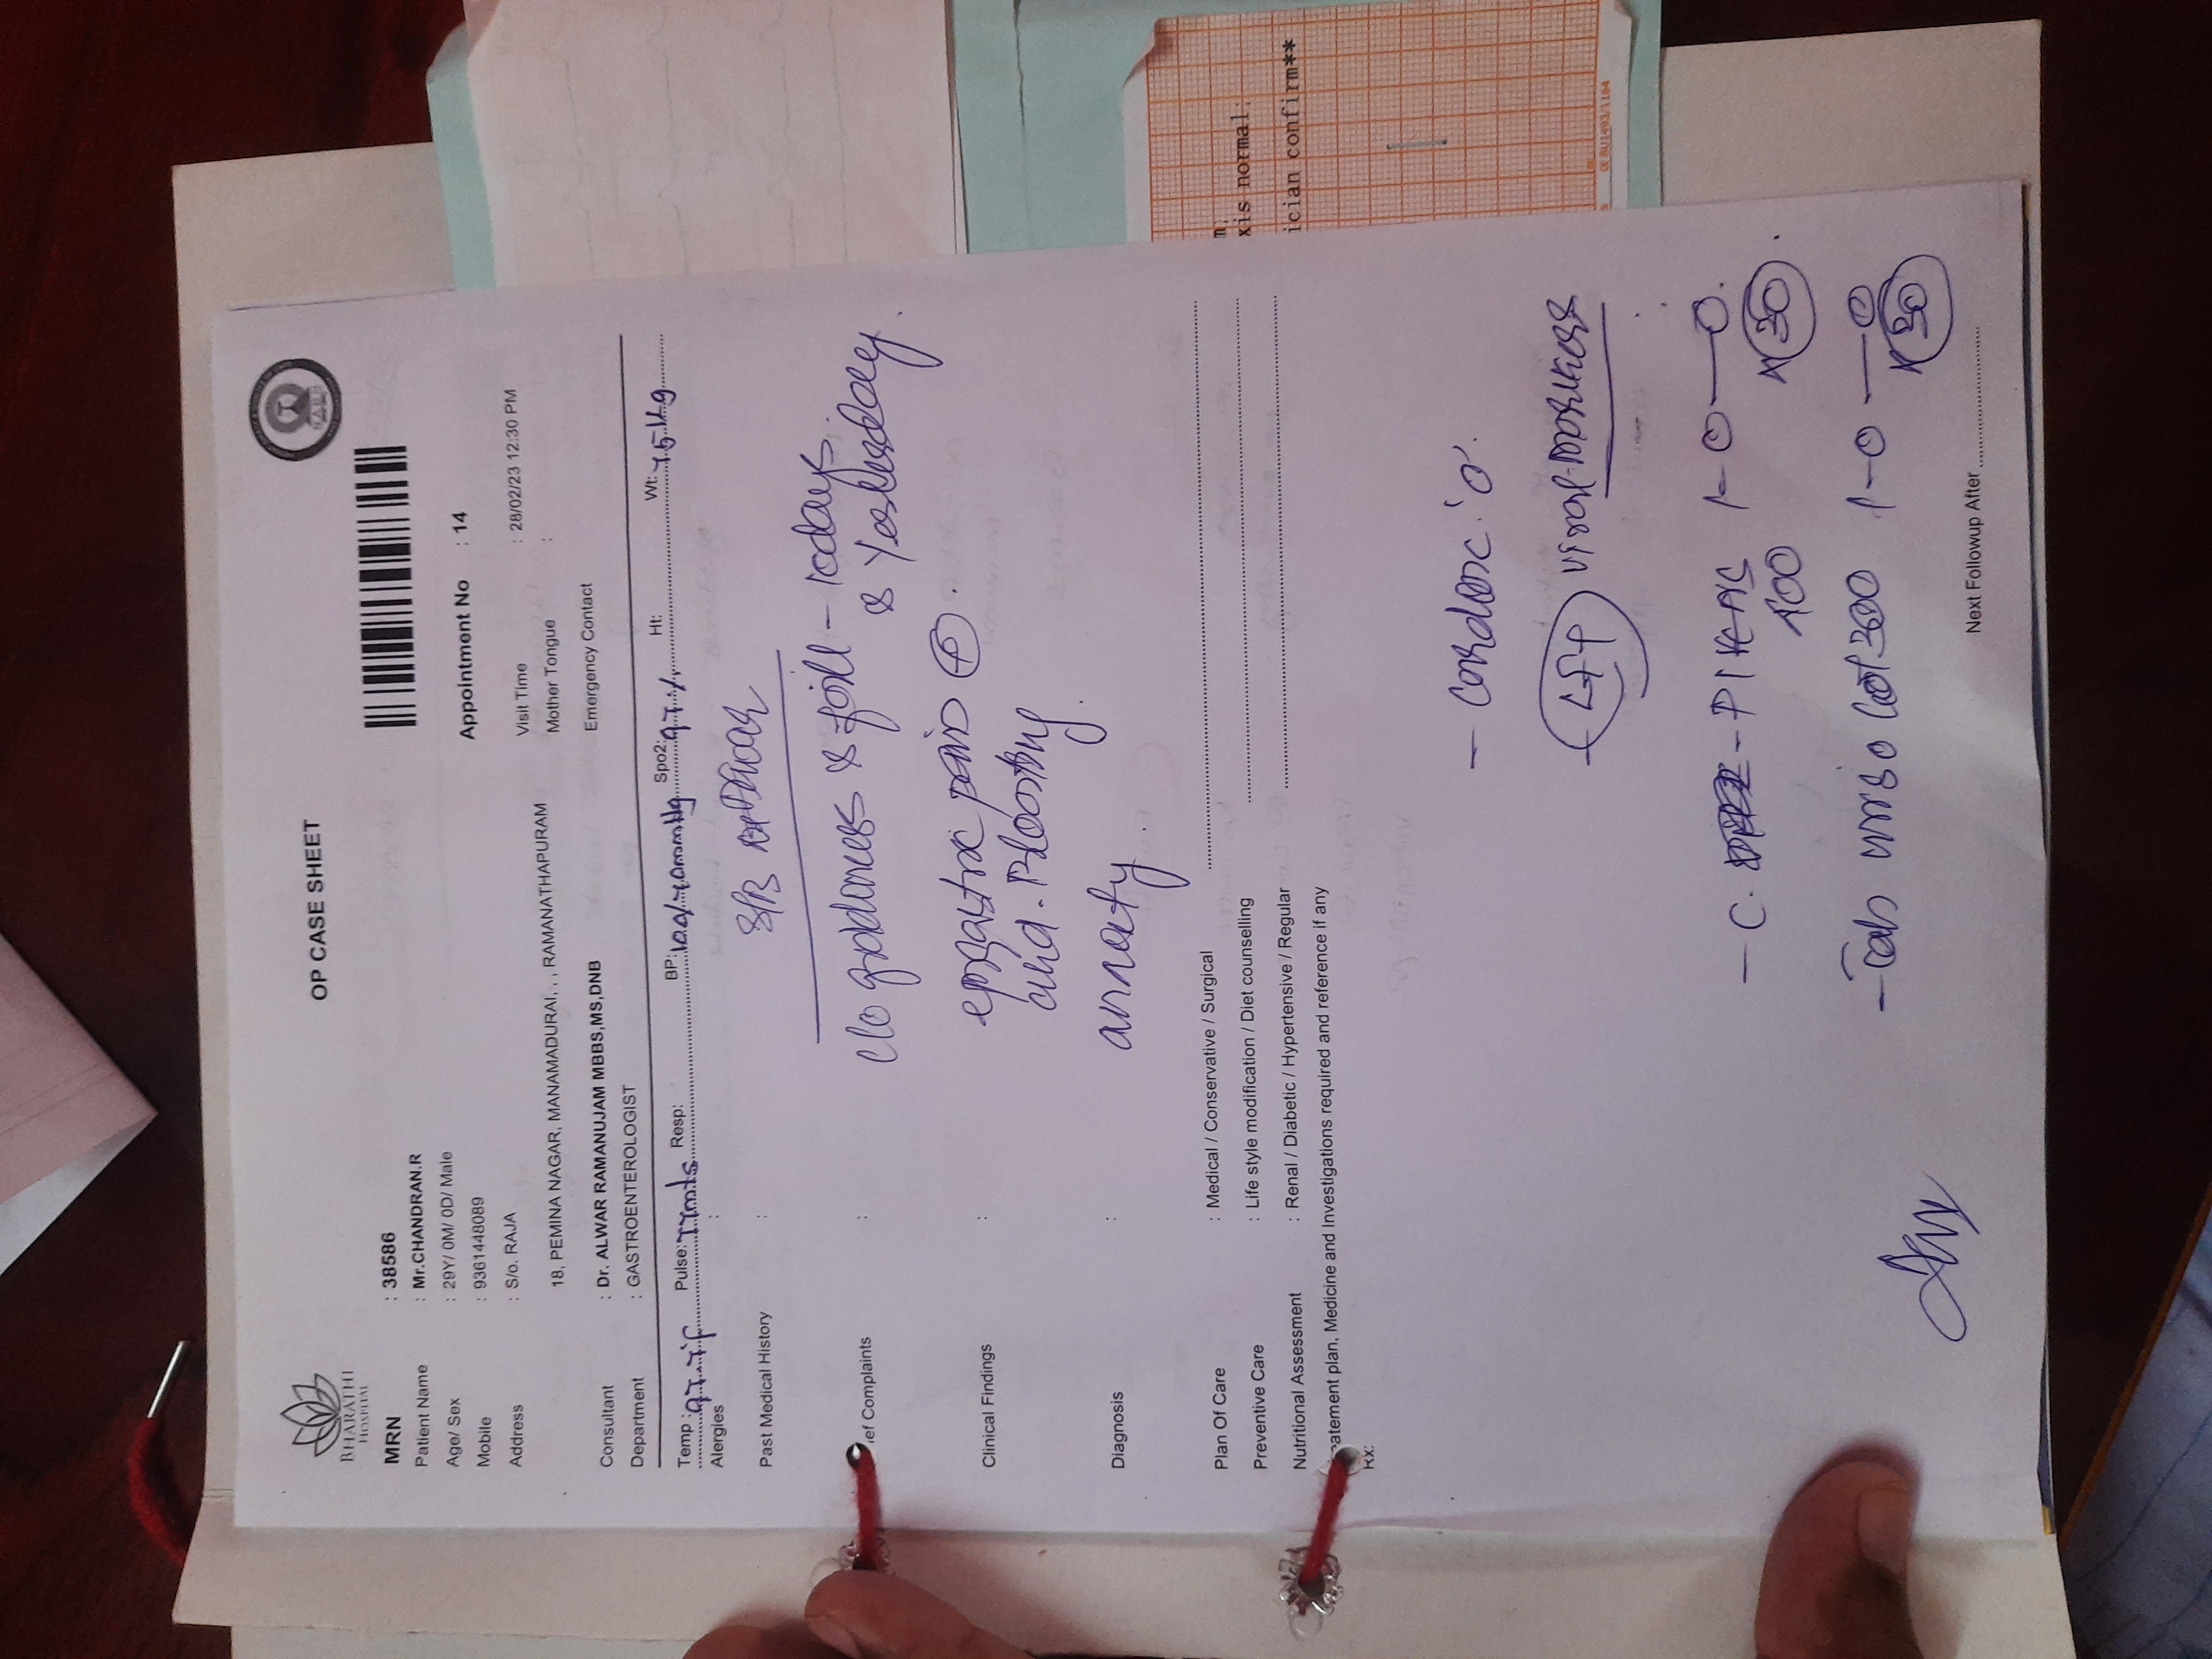 OP CASE SHEET
BHARATHI
HOSPITAL
NABH
MRN : 38586
Patient Name : Mr.CHANDRAN.R
Age/ Sex : 29Y/ 0M/ 0D/ Male
Mobile : 9361448089
Address : S/o. RAJA
18, PEMINA NAGAR, MANAMADURAI, , , RAMANATHAPURAM
Consultant : Dr. ALWAR RAMANUJAM MBBS,MS,DNB
Department : GASTROENTEROLOGIST
Appointment No : 14
Visit Time : 28/02/23 12:30 PM
Mother Tongue :
Emergency Contact
Temp: 97.7°F Pulse: 77mts Resp: BP: 100/70mmHg Spo2: 97% Ht: Wt: 75Kg
Alergies :
Past Medical History :
S/B
ief Complaints :
c/o giddiness & - 10days.
& Yesterday
Clinical Findings :
epigastric pain ⊕.
and. Bloating
Diagnosis :
anxiety.
Plan Of Care : Medical / Conservative / Surgical
Preventive Care : Life style modification / Diet counselling
Nutritional Assessment : Renal / Diabetic / Hypertensive / Regular
eatement plan, Medicine and Investigations required and reference if any
Rx:
- Cardiac 'o'.
- LFT Viral-markers
- C. - PIKAS 1-0-0.
400 x 30.
- Tab urso 300 1-0-0
x 30
Next Followup After
xis normal;
ician confirm**
BU1493/1164